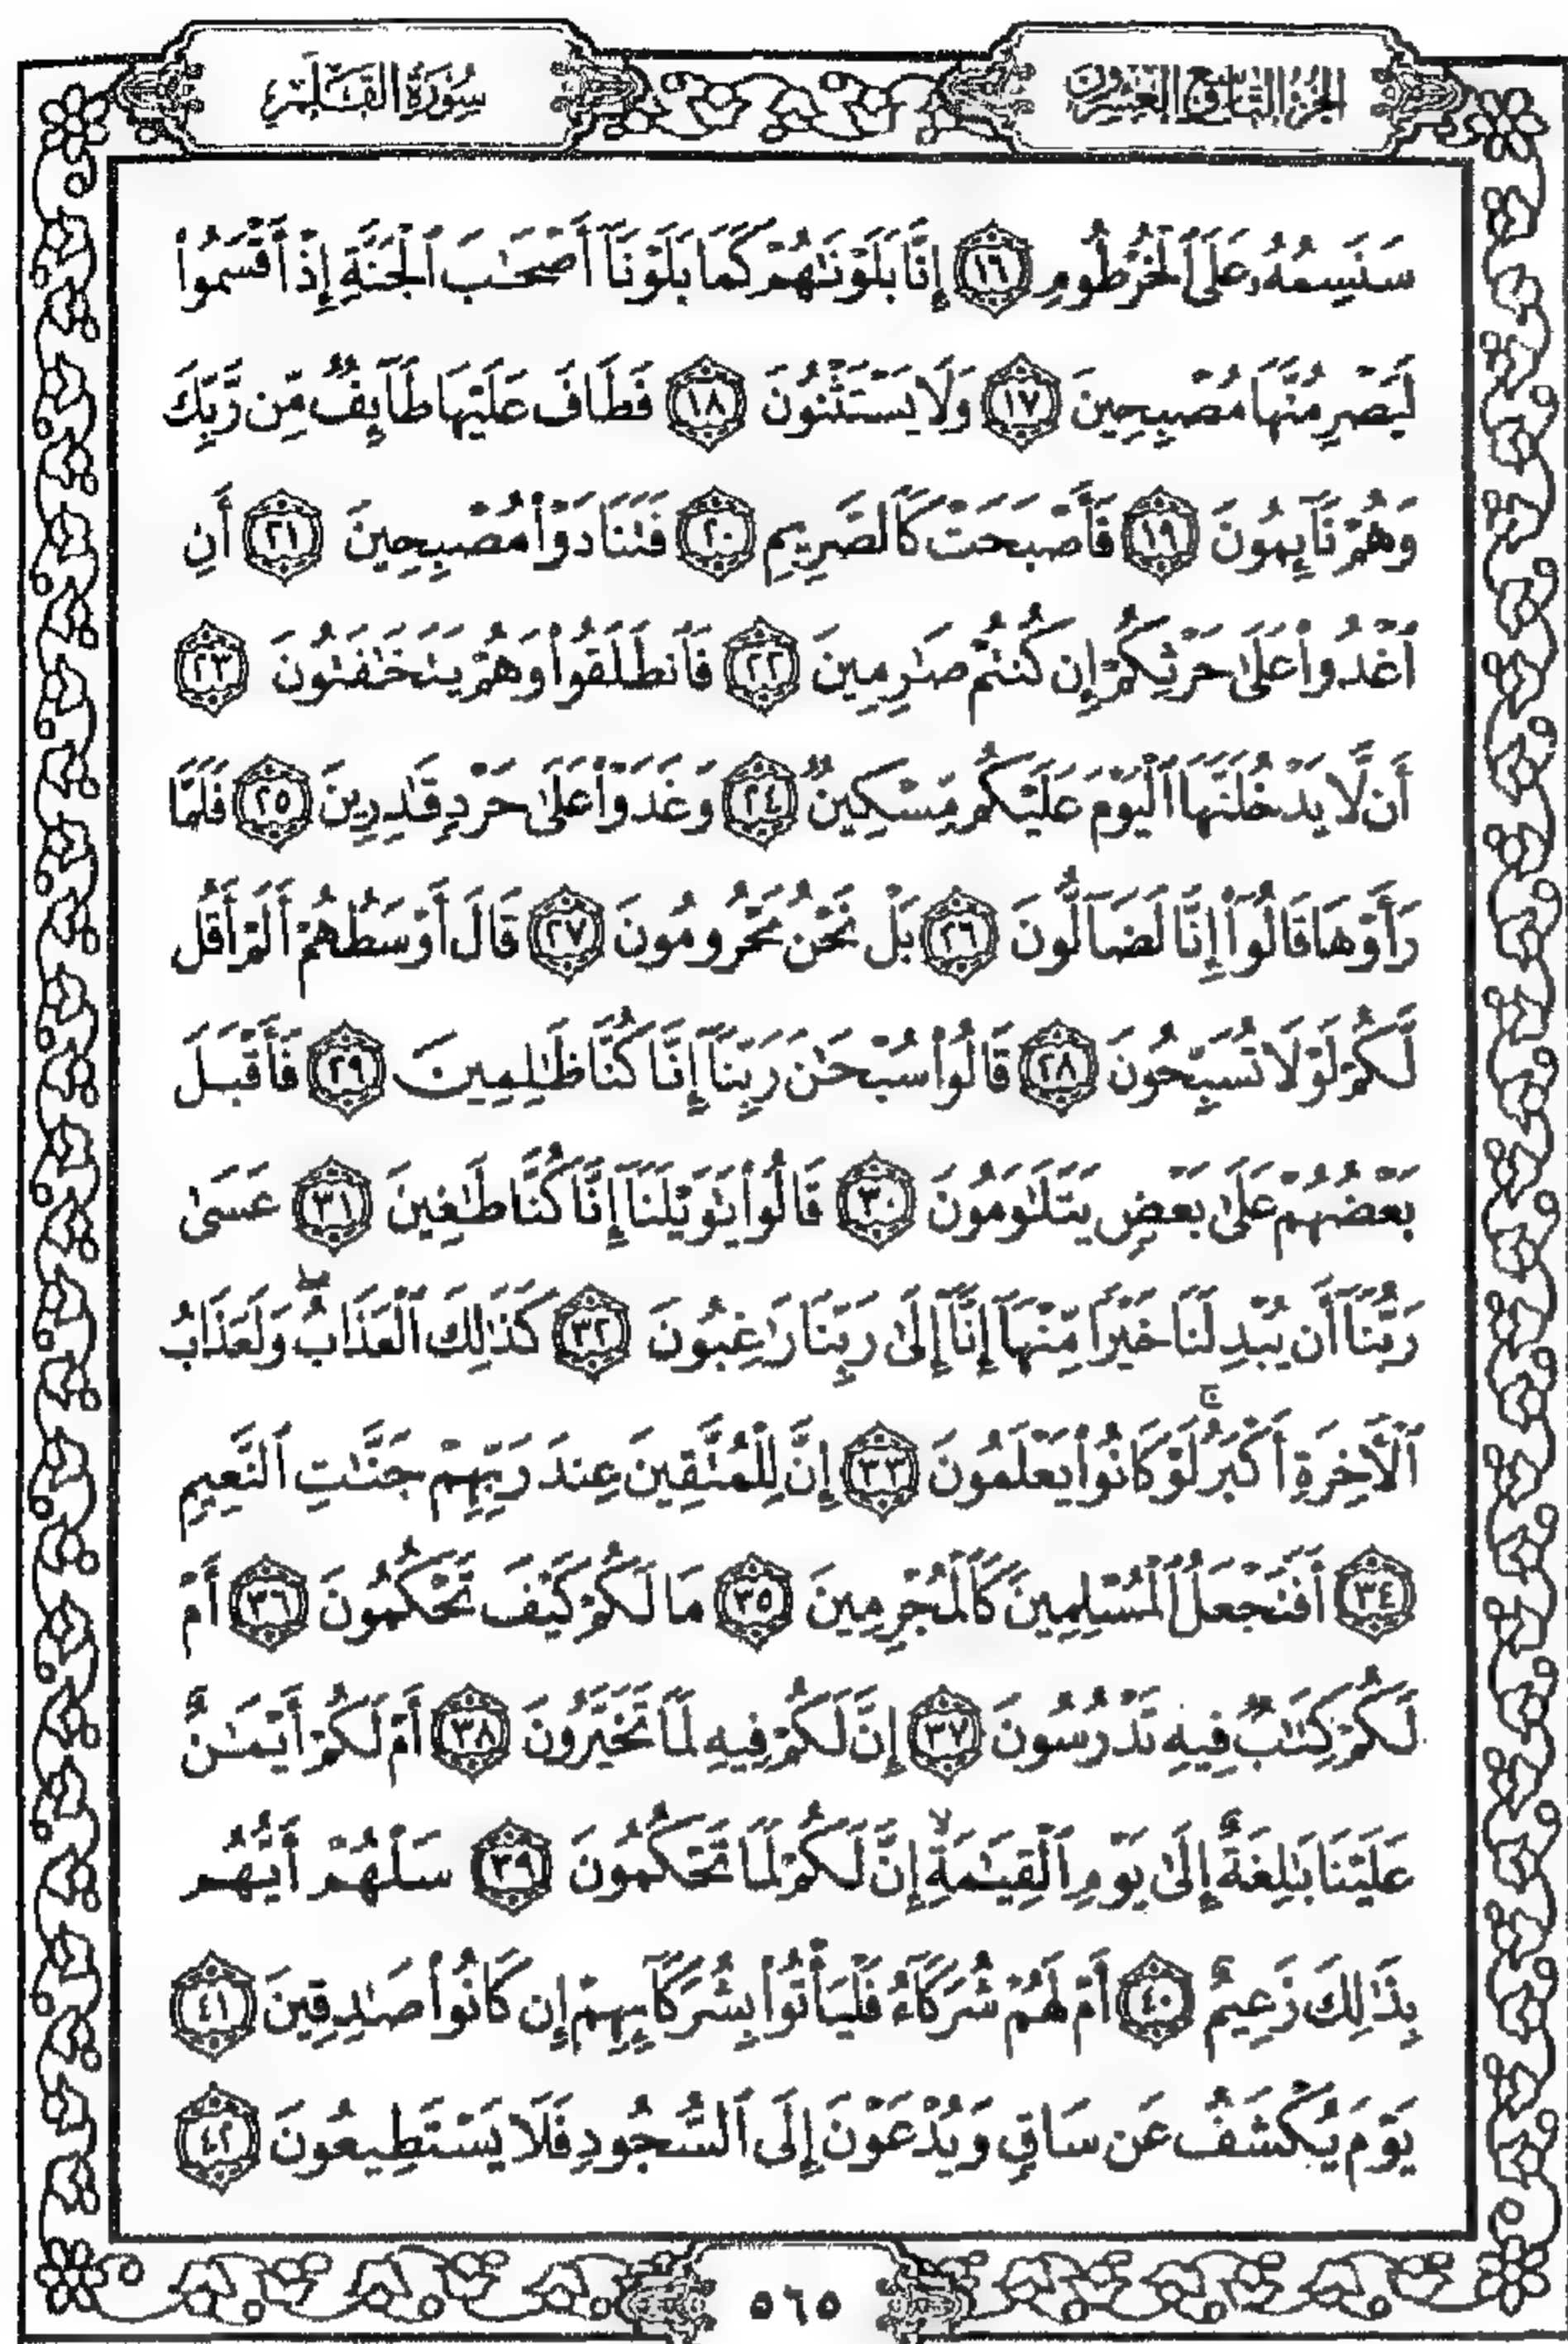 الجزء التاسع والعشرون
سُورَةُ القَلَمِ
سَنَسِمُهُۥ عَلَى ٱلْخُرْطُومِ ١٦ إِنَّا بَلَوْنَٰهُمْ كَمَا بَلَوْنَآ أَصْحَٰبَ ٱلْجَنَّةِ إِذْ أَقْسَمُوا۟
لَيَصْرِمُنَّهَا مُصْبِحِينَ ١٧ وَلَا يَسْتَثْنُونَ ١٨ فَطَافَ عَلَيْهَا طَآئِفٌ مِّن رَّبِّكَ
وَهُمْ نَآئِمُونَ ١٩ فَأَصْبَحَتْ كَٱلصَّرِيمِ ٢٠ فَتَنَادَوْا۟ مُصْبِحِينَ ٢١ أَنِ
ٱغْدُوا۟ عَلَىٰ حَرْثِكُمْ إِن كُنتُمْ صَٰرِمِينَ ٢٢ فَٱنطَلَقُوا۟ وَهُمْ يَتَخَٰفَتُونَ ٢٣
أَن لَّا يَدْخُلَنَّهَا ٱلْيَوْمَ عَلَيْكُم مِّسْكِينٌ ٢٤ وَغَدَوْا۟ عَلَىٰ حَرْدٍ قَٰدِرِينَ ٢٥ فَلَمَّا
رَأَوْهَا قَالُوٓا۟ إِنَّا لَضَآلُّونَ ٢٦ بَلْ نَحْنُ مَحْرُومُونَ ٢٧ قَالَ أَوْسَطُهُمْ أَلَمْ أَقُل
لَّكُمْ لَوْلَا تُسَبِّحُونَ ٢٨ قَالُوا۟ سُبْحَٰنَ رَبِّنَآ إِنَّا كُنَّا ظَٰلِمِينَ ٢٩ فَأَقْبَلَ
بَعْضُهُمْ عَلَىٰ بَعْضٍ يَتَلَٰوَمُونَ ٣٠ قَالُوا۟ يَٰوَيْلَنَآ إِنَّا كُنَّا طَٰغِينَ ٣١ عَسَىٰ
رَبُّنَآ أَن يُبْدِلَنَا خَيْرًا مِّنْهَآ إِنَّآ إِلَىٰ رَبِّنَا رَٰغِبُونَ ٣٢ كَذَٰلِكَ ٱلْعَذَابُ ۖ وَلَعَذَابُ
ٱلْءَاخِرَةِ أَكْبَرُ ۚ لَوْ كَانُوا۟ يَعْلَمُونَ ٣٣ إِنَّ لِلْمُتَّقِينَ عِندَ رَبِّهِمْ جَنَّٰتِ ٱلنَّعِيمِ
٣٤ أَفَنَجْعَلُ ٱلْمُسْلِمِينَ كَٱلْمُجْرِمِينَ ٣٥ مَا لَكُمْ كَيْفَ تَحْكُمُونَ ٣٦ أَمْ
لَكُمْ كِتَٰبٌ فِيهِ تَدْرُسُونَ ٣٧ إِنَّ لَكُمْ فِيهِ لَمَا تَخَيَّرُونَ ٣٨ أَمْ لَكُمْ أَيْمَٰنٌ
عَلَيْنَا بَٰلِغَةٌ إِلَىٰ يَوْمِ ٱلْقِيَٰمَةِ ۙ إِنَّ لَكُمْ لَمَا تَحْكُمُونَ ٣٩ سَلْهُمْ أَيُّهُم
بِذَٰلِكَ زَعِيمٌ ٤٠ أَمْ لَهُمْ شُرَكَآءُ فَلْيَأْتُوا۟ بِشُرَكَآئِهِمْ إِن كَانُوا۟ صَٰدِقِينَ ٤١
يَوْمَ يُكْشَفُ عَن سَاقٍ وَيُدْعَوْنَ إِلَى ٱلسُّجُودِ فَلَا يَسْتَطِيعُونَ ٤٢
٥٦٥